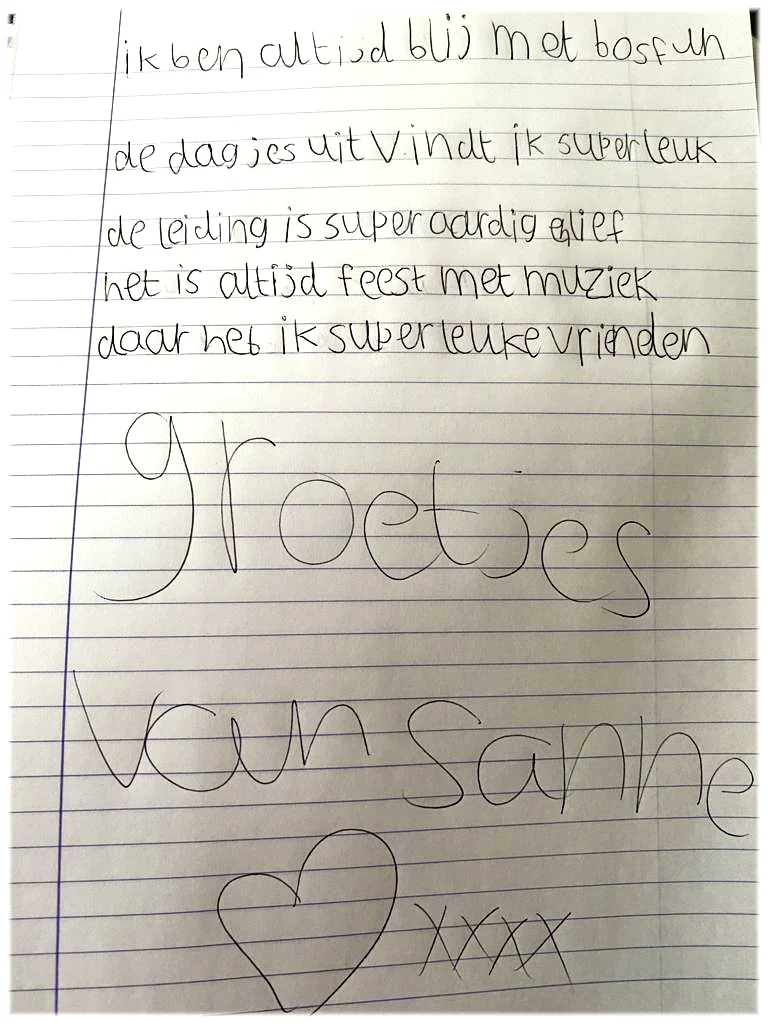 ik ben altijd blij met bosfun
de dagjes uit vindt ik super leuk
de leiding is super aardig & lief
het is altijd feest met muziek
daar heb ik super leuke vrienden
groetjes
van Sanne
xxxx